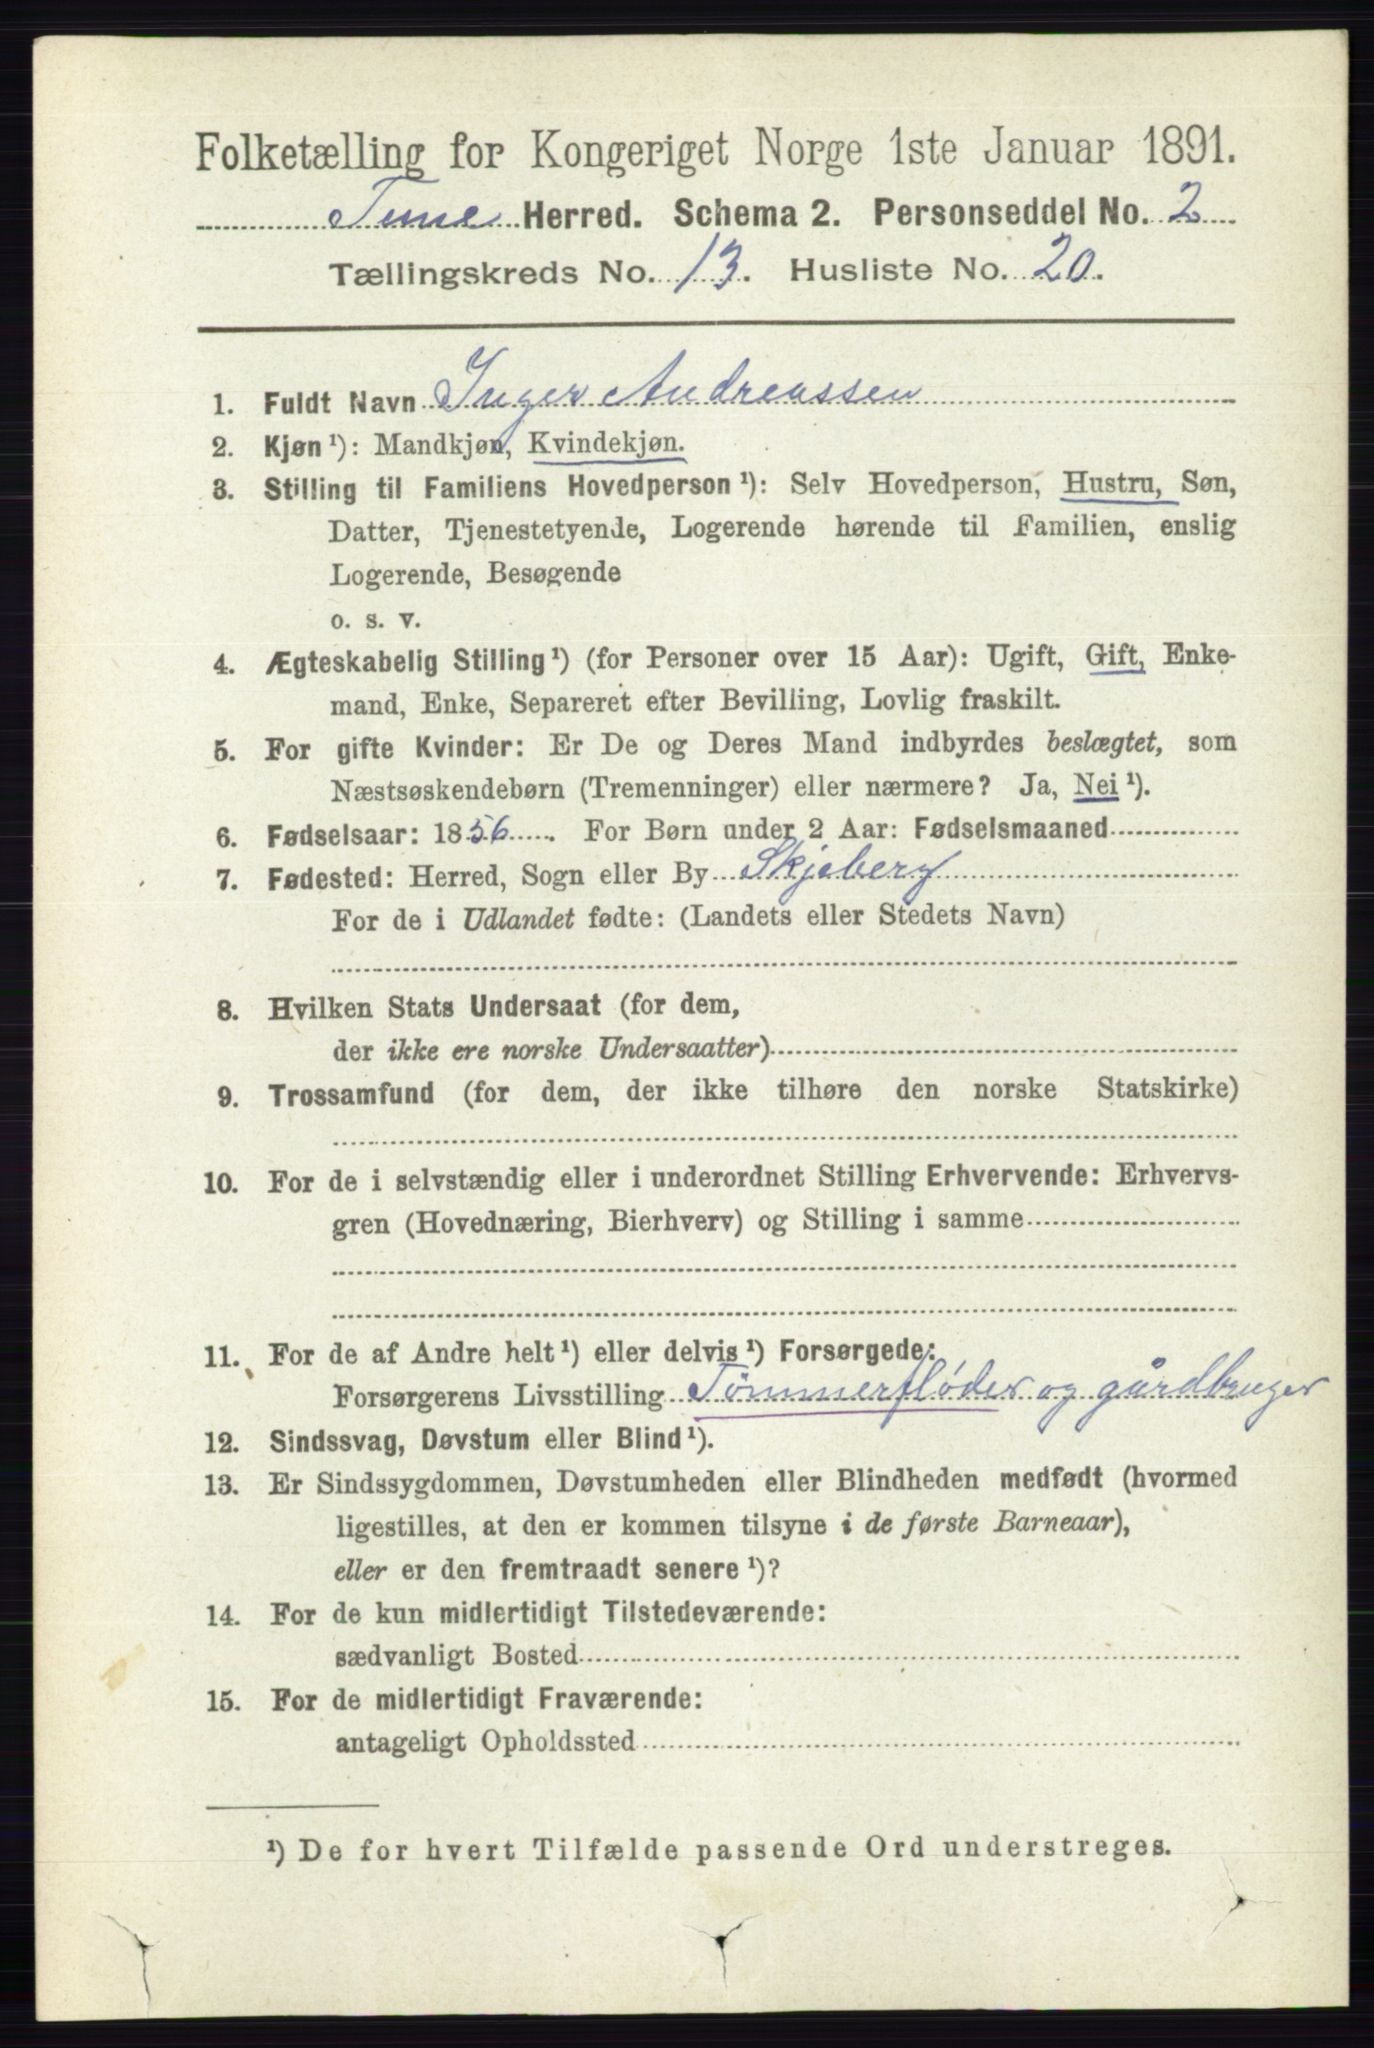 Folketælling for Kongeriget Norge 1ste Januar 1891.
Tune Herred. Schema 2. Personseddel No. 2
Tællingskreds No. 13. Husliste No. 20.
1. Fuldt Navn Inger Andreassen
2. Kjøn¹): Mandkjøn, Kvindekjøn.
3. Stilling til Familiens Hovedperson¹): Selv Hovedperson, Hustru, Søn,
Datter, Tjenestetyende, Logerende hørende til Familien, enslig
Logerende, Besøgende
o. s. v.
4. Ægteskabelig Stilling¹) (for Personer over 15 Aar): Ugift, Gift, Enke-
mand, Enke, Separeret efter Bevilling, Lovlig fraskilt.
5. For gifte Kvinder: Er De og Deres Mand indbyrdes beslægtet, som
Næstsøskendebørn (Tremenninger) eller nærmere? Ja, Nei¹).
6. Fødselsaar: 1856. For Børn under 2 Aar: Fødselsmaaned
7. Fødested: Herred, Sogn eller By Skjeberg
For de i Udlandet fødte: (Landets eller Stedets Navn)
8. Hvilken Stats Undersaat (for dem,
der ikke ere norske Undersaatter)
9. Trossamfund (for dem, der ikke tilhøre den norske Statskirke)
10. For de i selvstændig eller i underordnet Stilling Erhvervende: Erhvervs-
gren (Hovednæring, Bierhverv) og Stilling i samme
11. For de af Andre helt¹) eller delvis¹) Forsørgede:
Forsørgerens Livsstilling Tømmerfløder og gårdbruger
12. Sindssvag, Døvstum eller Blind¹).
13. Er Sindssygdommen, Døvstumheden eller Blindheden medfødt (hvormed
ligestilles, at den er kommen tilsyne i de første Barneaar),
eller er den fremtraadt senere¹)?
14. For de kun midlertidigt Tilstedeværende:
sædvanligt Bosted
15. For de midlertidigt Fraværende:
antageligt Opholdssted
¹) De for hvert Tilfælde passende Ord understreges.